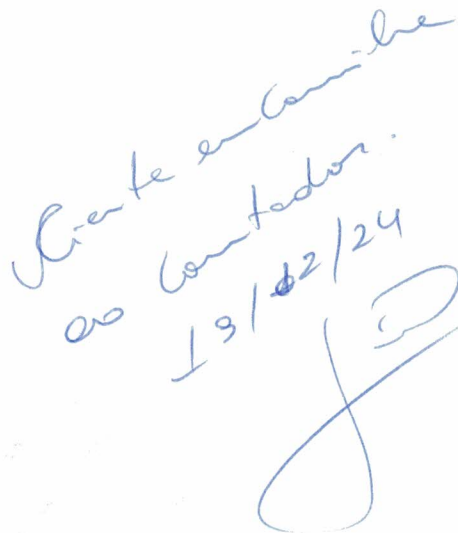 Ciente encaminhe
ao contador.
19/12/24